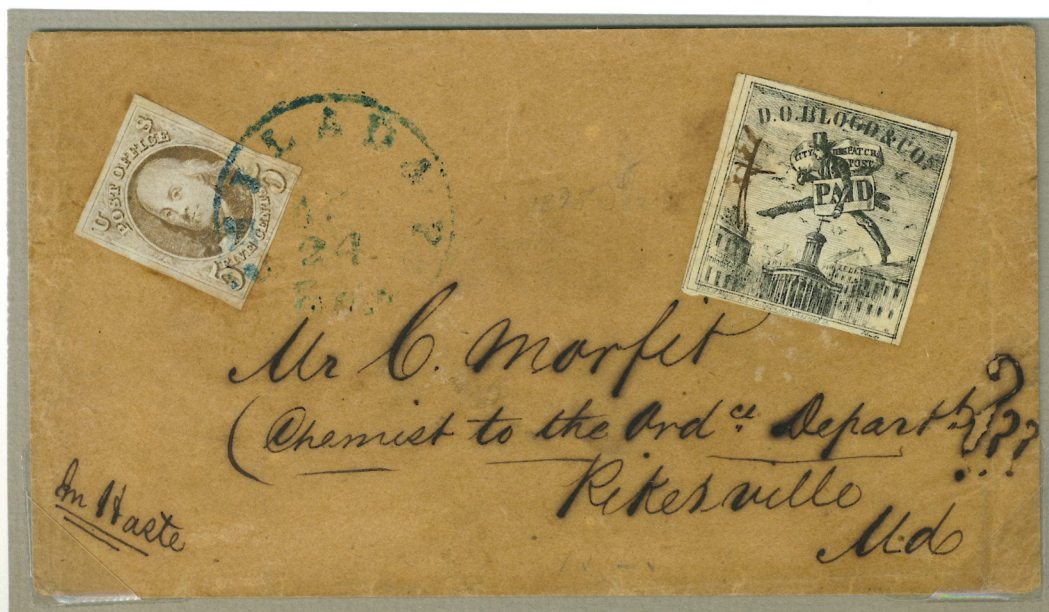 POST OFFICE
FIVE CENTS
PHILADA Pa
24
D.O.BLOOD & CO.
CITY DESPATCH
POST
PAID
Mr C. Morfit
(Chemist to the Ordce. Depart)???
Pikesville
Md
In Haste